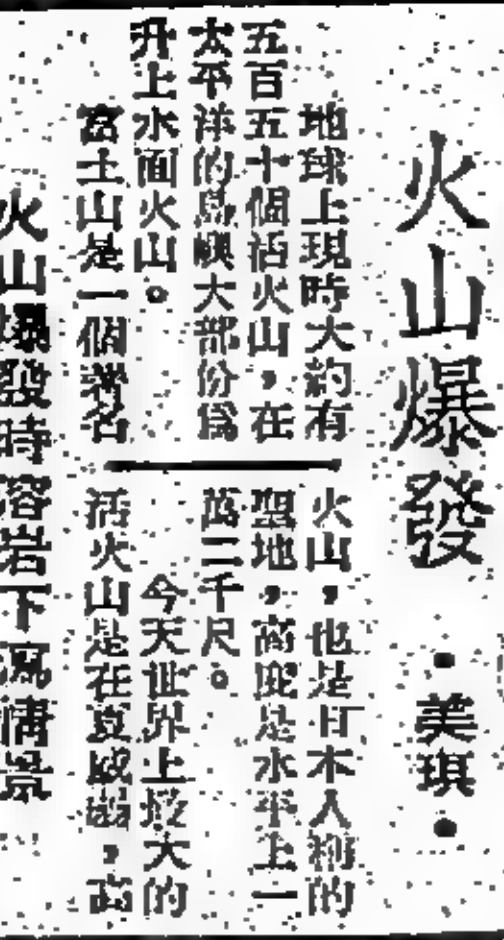 火山爆發 ・美琪・
地球上現時大約有
五百五十個活火山，在
太平洋的島嶼大部份爲
升上水面火山。
富士山是一個著名
火山，也是日本人的
聖地，高度是水平上一
萬二千尺。
今天世界上最大的
活火山是在夏威，高
火山爆發時溶岩下瀉情景